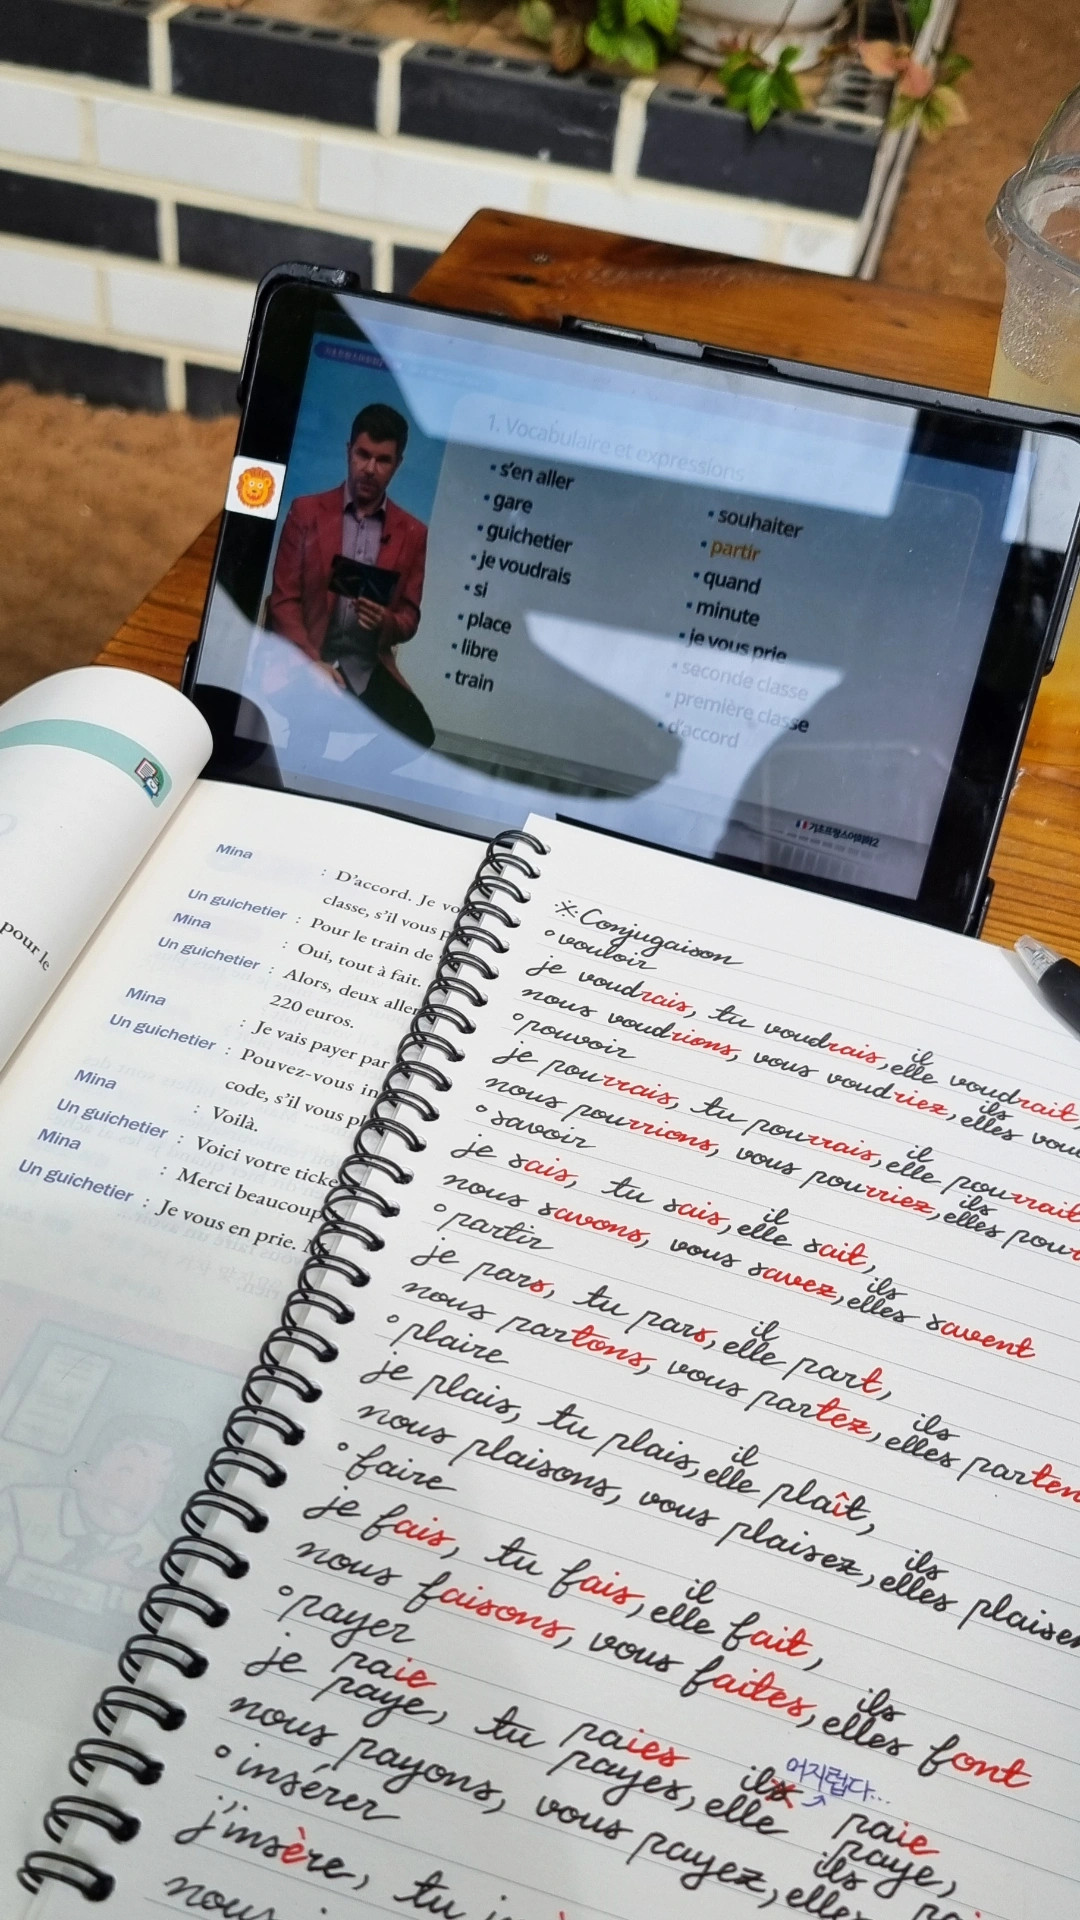 1. Vocabulaire et expressions
• s'en aller
• gare
• guichetier
• je voudrais
• si
• place
• libre
• train
• souhaiter
• partir
• quand
• minute
• je vous prie
• seconde classe
• première classe
• d'accord
기초프랑스어회화2
pour le
Mina : D'accord. Je vo
classe, s'il vous p
Un guichetier : Pour le train de
Mina : Oui, tout à fait.
Un guichetier : Alors, deux aller
220 euros.
Mina : Je vais payer par
Un guichetier : Pouvez-vous in
code, s'il vous pl
Mina : Voilà.
Un guichetier : Voici votre ticke
Mina : Merci beaucoup
Un guichetier : Je vous en prie.
※ Conjugaison
° vouloir
je voudrais, tu voudrais, il elle voudrait,
nous voudrions, vous voudriez, ils elles vou
° pouvoir
je pourrais, tu pourrais, il elle pourrait
nous pourrions, vous pourriez, ils elles pour
° savoir
je sais, tu sais, il elle sait,
nous savons, vous savez, ils elles savent
° partir
je pars, tu pars, il elle part,
nous partons, vous partez, ils elles parten
° plaire
je plais, tu plais, il elle plaît,
nous plaisons, vous plaisez, ils elles plaisen
° faire
je fais, tu fais, il elle fait,
nous faisons, vous faites, ils elles font
° payer
어지럽다...
je paie paye, tu paies payes, il elle paie paye,
nous payons, vous payez, ils elles
° insérer
j'insère, tu
nous